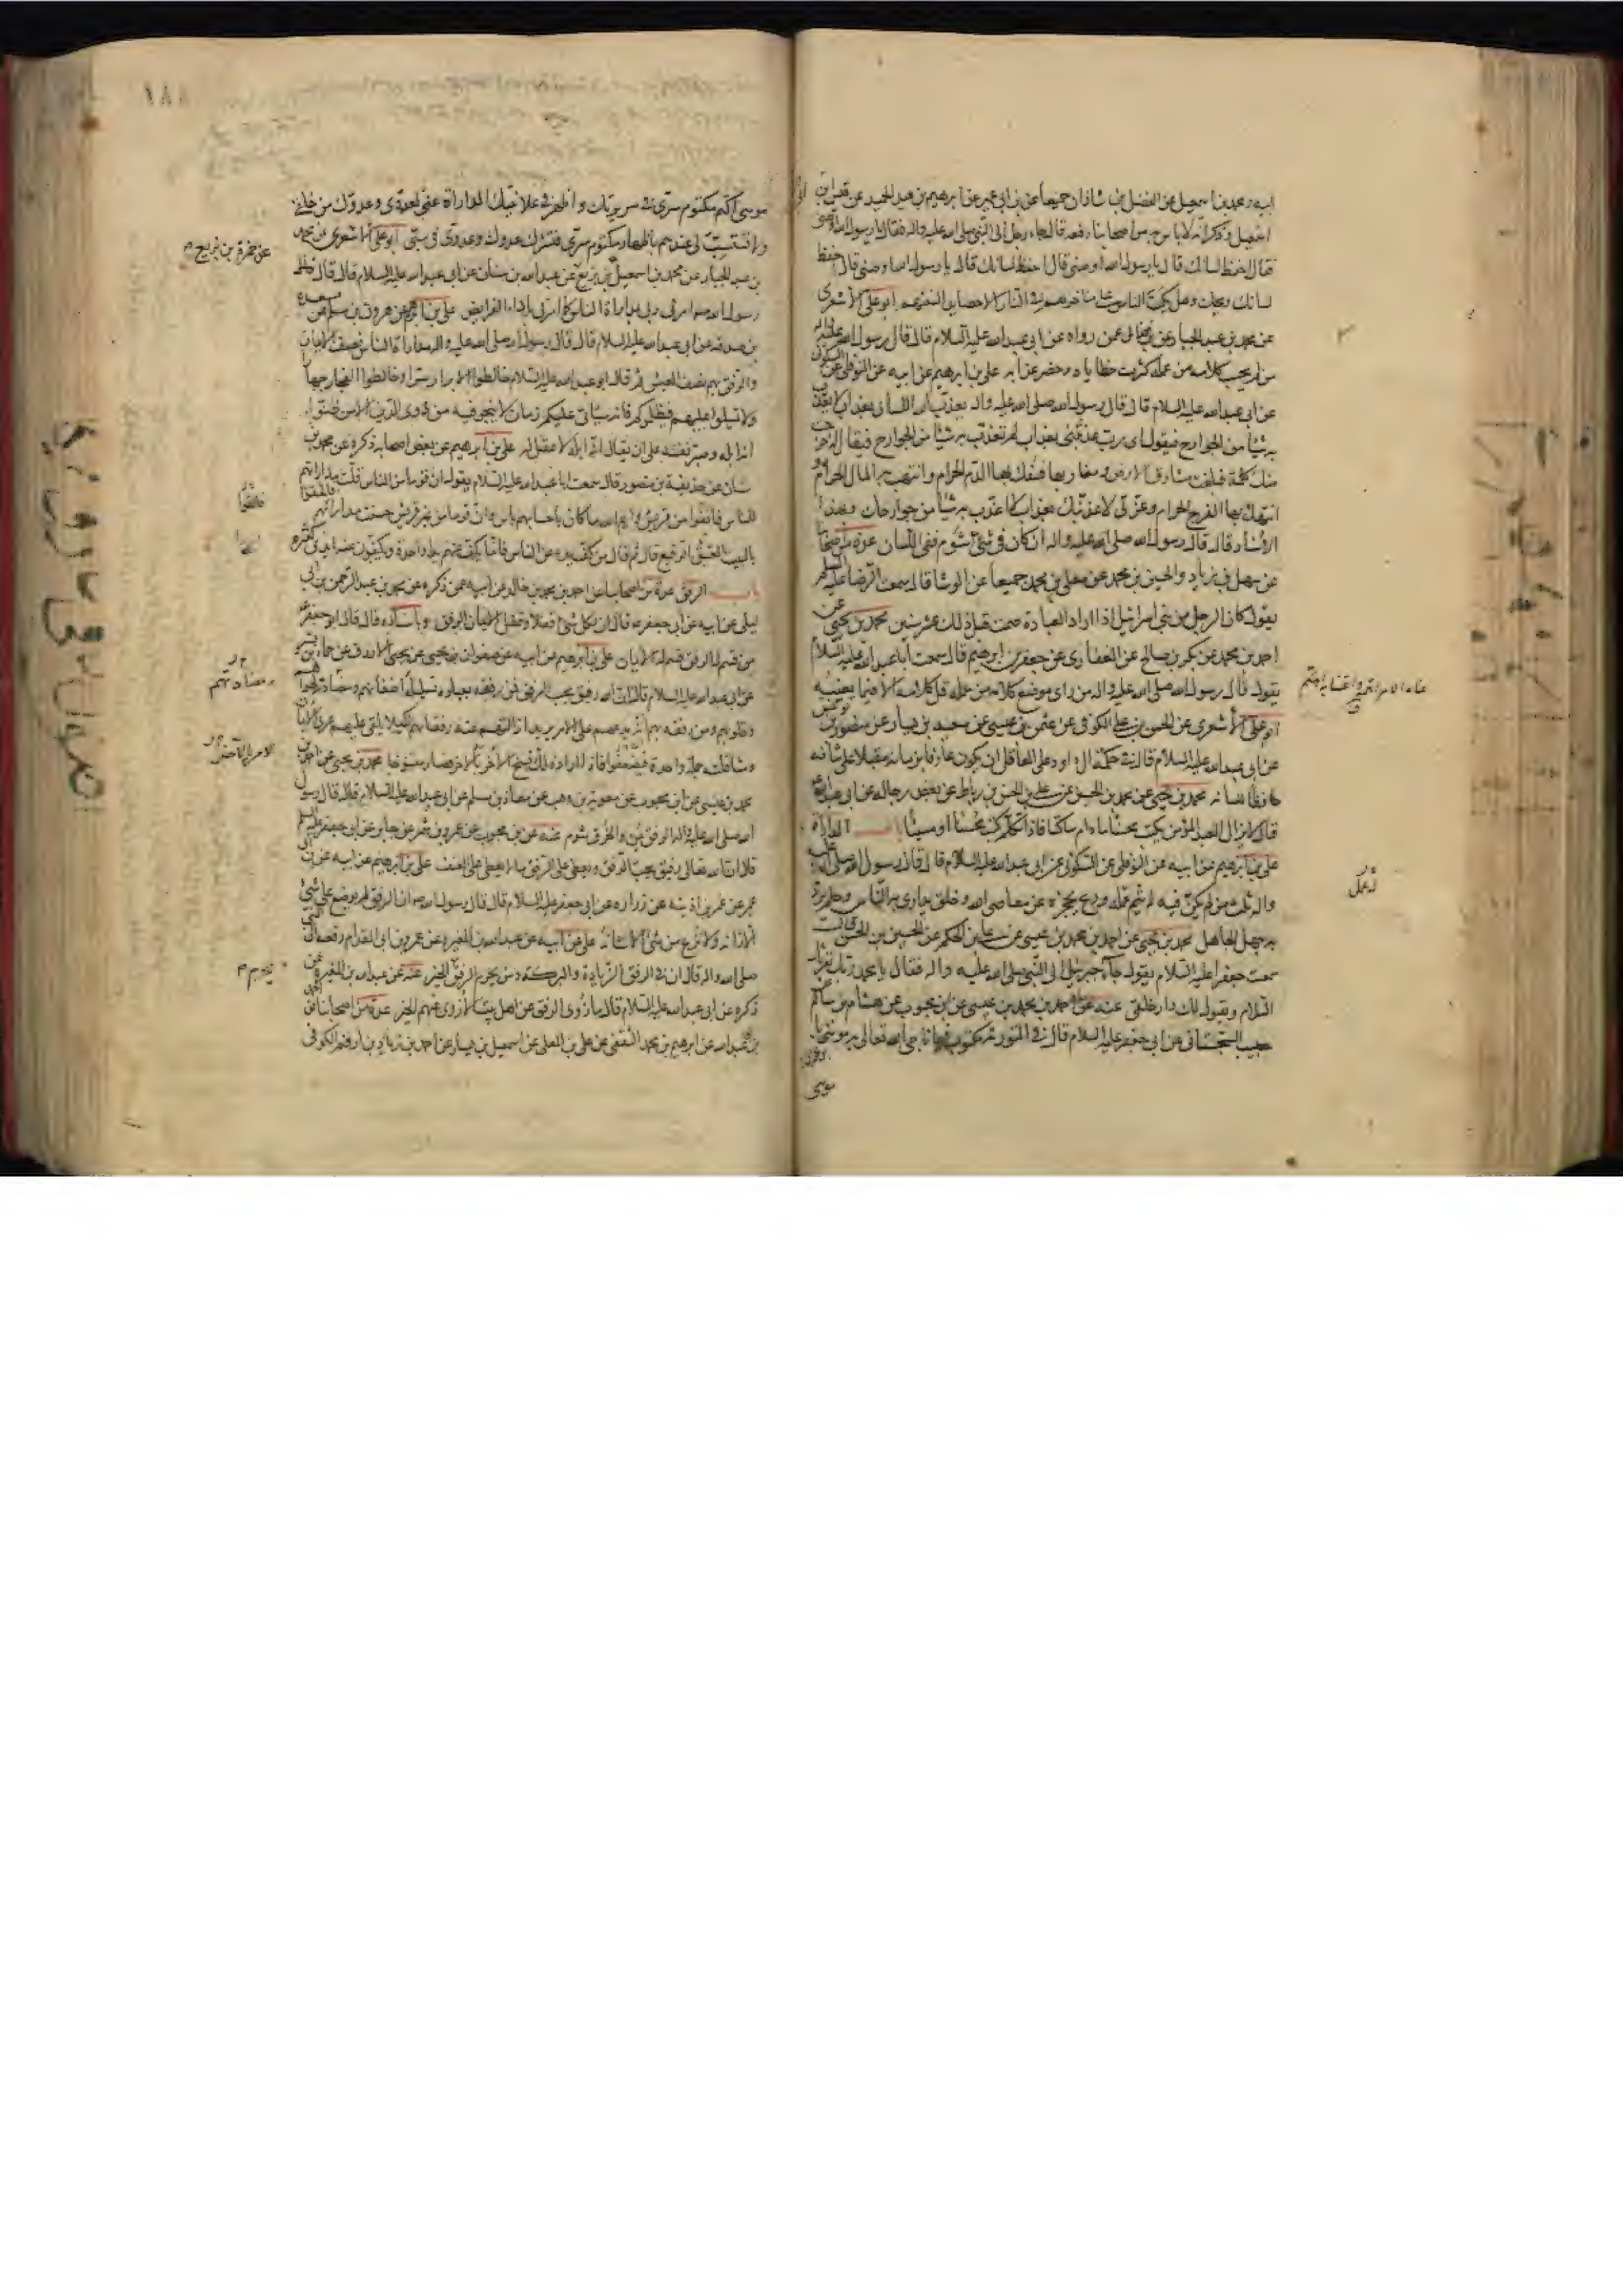 احفظ لسانك قال يا رسول الله اوصني قال احفظ لسانك قال يا رسول الله اوصني قال احفظ
لسانك ويحك وهل يكب الناس على مناخرهم في النار الا حصايد السنتهم ابو علي الاشعري
عن محمد بن عبد الجبار عن ابن فضال عمن رواه عن ابي عبد الله عليه السلام قال قال رسول الله
من لم يحسب كلامه من عمله كثرت خطاياه وحضر عذابه علي بن ابرهيم عن ابيه عن النوفلي عن السكوني
عن ابي عبد الله عليه السلام قال قال رسول الله صلى الله عليه واله يعذب الله اللسان بعذاب لا يعذب
به شيئا من الجوارح فيقول اي رب عذبتني بعذاب لم تعذب به شيئا من الجوارح فيقال له خرجت
منك كلمة فبلغت مشارق الارض ومغاربها فسفك بها الدم الحرام وانتهب بها المال الحرام و
انتهك بها الفرج الحرام وعزتي لاعذبنك بعذاب لا اعذب به شيئا من جوارحك وبهذا
الاسناد قال قال رسول الله صلى الله عليه واله ان كان في شيء شوم ففي اللسان عدة من اصحابنا
عن سهل بن زياد والحسين بن محمد عن معلى بن محمد جميعا عن الوشا قال سمعت الرضا عليه السلم
يقول كان الرجل من بني اسرائيل اذا اراد العبادة صمت قبل ذلك عشر سنين محمد بن يحيى عن
احمد بن محمد عن بكر بن صالح عن الغفاري عن جعفر بن ابرهيم قال سمعت ابا عبد الله عليه السلام
يقول قال رسول الله صلى الله عليه واله من راى موضع كلامه من عمله قل كلامه الا فيما يعنيه
ابو علي الاشعري عن الحسن بن علي الكوفي عن عثمن بن عيسى عن سعيد بن يسار عن منصور بن يونس
عن ابي عبد الله عليه السلام قال في حكمة ال داود على العاقل ان يكون عارفا بزمانه مقبلا على شانه
حافظا للسانه محمد بن يحيى عن محمد بن الحسن عن علي بن الحسن بن رباط عن بعض رجاله عن ابي عبد الله
قال لا يزال العبد المؤمن يكتب محسنا ما دام ساكتا فاذا تكلم كتب محسنا او مسيئا باب المداراة
علي بن ابرهيم عن ابيه عن النوفلي عن السكوني عن ابي عبد الله عليه السلام قال قال رسول الله صلى الله عليه
واله ثلث من لم يكن فيه لم يتم عمله ورع يحجزه عن معاصي الله وخلق يداري به الناس وحلم يرد
به جهل الجاهل محمد بن يحيى عن احمد بن محمد بن عيسى عن علي بن الحكم عن الحسين بن الحسن قال
سمعت جعفرا عليه السلام يقول جاء جبرئيل الى النبي صلى الله عليه واله فقال يا محمد ربك يقرئك
السلام ويقول لك دار خلقي عنه عن احمد بن محمد بن عيسى عن ابن محبوب عن هشام بن سالم
حبيب السجستاني عن ابي جعفر عليه السلام قال في التورية مكتوب فيما ناجى الله تعالى به موسى
موسى
لعل
١٨٨
موسى اكتم مكتوم سري في سريرتك واظهر في علانيتك المداراة عني لعدوي وعدوك من خلقي
ولا تستسب لي عندهم باظهار مكتوم سري فتشرك عدوك وعدوي في سبي ابو علي الاشعري عن محمد
بن عبد الجبار عن محمد بن اسمعيل بن بزيع عن عبد الله بن سنان عن ابي عبد الله عليه السلام قال قال
رسول الله ص امرني ربي بمداراة الناس كما امرني باداء الفرايض علي بن ابرهيم عن هرون بن مسلم عن مسعدة
بن صدقة عن ابي عبد الله عليه السلام قال قال رسول الله صلى الله عليه واله مداراة الناس نصف الايمان
والرفق بهم نصف العيش ثم قال ابو عبد الله عليه السلام خالطوا الابرار سرا وخالطوا الفجار جهارا
ولا تميلوا عليهم فيظلموكم فانه سياتي عليكم زمان لا ينجو فيه من ذوي الدين الا من ظنوا
انه ابله وصبر نفسه على ان يقال انه ابله لا عقل له علي بن ابرهيم عن بعض اصحابه ذكره عن محمد بن
سنان عن حذيفة بن منصور قال سمعت ابا عبد الله عليه السلام يقول ان قوما من الناس قلت مداراتهم
للناس فانفوا من قريش وايم الله ما كان باحسابهم باس وان قوما من غير قريش حسنت مداراتهم فالحقوا
بالبيت الرفيع قال ثم قال من كف يده عن الناس فانما يكف عنهم يدا واحدة ويكفون عنه ايدي كثيرة
باب الرفق عدة من اصحابنا عن احمد بن محمد بن خالد عن ابيه عمن ذكره عن محمد بن عبد الرحمن بن ابي
ليلى عن ابيه عن ابي جعفر ع قال ان لكل شيء قفلا وقفل الايمان الرفق وباسناده قال قال ابو جعفر ع
من قسم له الرفق قسم له الايمان علي بن ابرهيم عن ابيه عن صفوان بن يحيى عن يحيى الازرق عن حماد بن بشير
عن ابي عبد الله عليه السلام قال ان الله رفيق يحب الرفق فمن رفقه بعباده تسليله اضغانهم ومضادتهم لهواهم
وقلوبهم ومن رفقه بهم انه يدعهم على الامر يريد ازالتهم عنه رفقا بهم لكيلا يلقي عليهم عرى الايمان
ومثاقلته جملة واحدة فيضعفوا فاذا اراد ذلك نسخ الامر بالاخر فصار منسوخا محمد بن يحيى عن احمد بن
محمد بن عيسى عن ابن محبوب عن معوية بن وهب عن معاذ بن مسلم عن ابي عبد الله عليه السلام قال قال رسول
الله صلى الله عليه واله الرفق يمن والخرق شوم عنه عن ابن محبوب عن عمرو بن شمر عن جابر عن ابي جعفر عليه السلم
قال ان الله تعالى رفيق يحب الرفق ويعطي على الرفق ما لا يعطي على العنف علي بن ابرهيم عن ابيه عن ابن ابي
عمير عن عمر بن اذينة عن زرارة عن ابي جعفر عليه السلام قال قال رسول الله ص ان الرفق لم يوضع على شيء
الا زانه ولا نزع من شيء الا شانه علي عن ابيه عن عبد الله بن المغيرة عن عمرو بن ابي المقدام رفعه الى النبي
صلى الله واله قال ان في الرفق الزيادة والبركة ومن يحرم الرفق يحرم الخير عنه عن عبد الله بن المغيرة عمن
ذكره عن ابي عبد الله عليه السلام قال ما زوي الرفق عن اهل بيت الا زوي عنهم الخير عدة من اصحابنا عن احمد
بن ابي عبد الله عن ابرهيم بن محمد الثقفي عن علي بن المعلى عن اسمعيل بن يسار عن احمد بن زياد بن ارقم الكوفي
عن حمزة بن بزيع